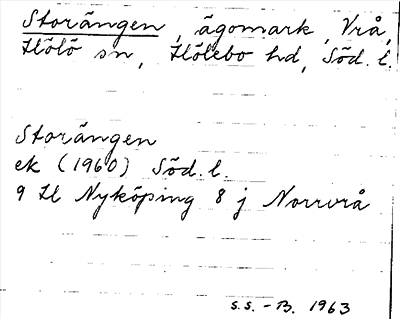 Storängen, ägomark, Vrå,
Hölö sn, Hölebo hd, Söd. l.
Storängen
ek (1960) Söd. l.
9 H Nyköping 8 j Norrvrå
S.S. - B. 1963